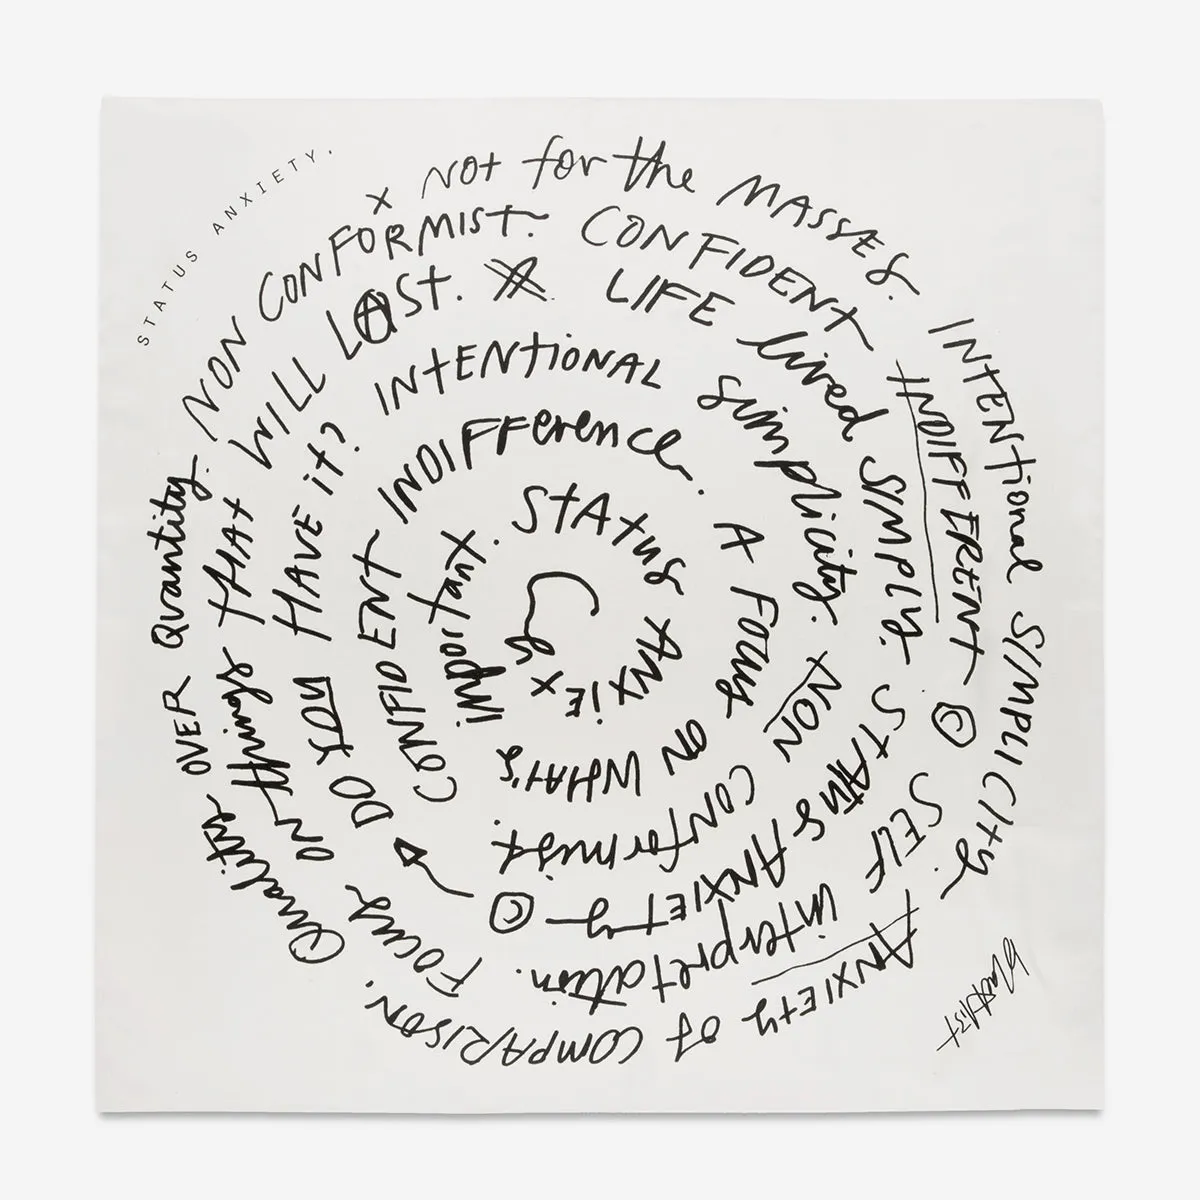 STATUS ANXIETY.
x NOt for the MASSES. INTENtional SIMPLICIty. ANXIEty OF COMPARISON. Quality OVER Quantity.
NON CONFORMIST. CONFIDENT INDIFFERENT © SELF interpretation. Focus ON things tHAt WILL LASt.
LIFE lived SIMPLY. StAtus ANXIEty © DO YOU HAVE it?
INtENtiONAL simplicity. NON CONformist.
CONFIDENT INDIFFerence. A FOCUS ON WHAT'S important.
StAtus ANXiE x